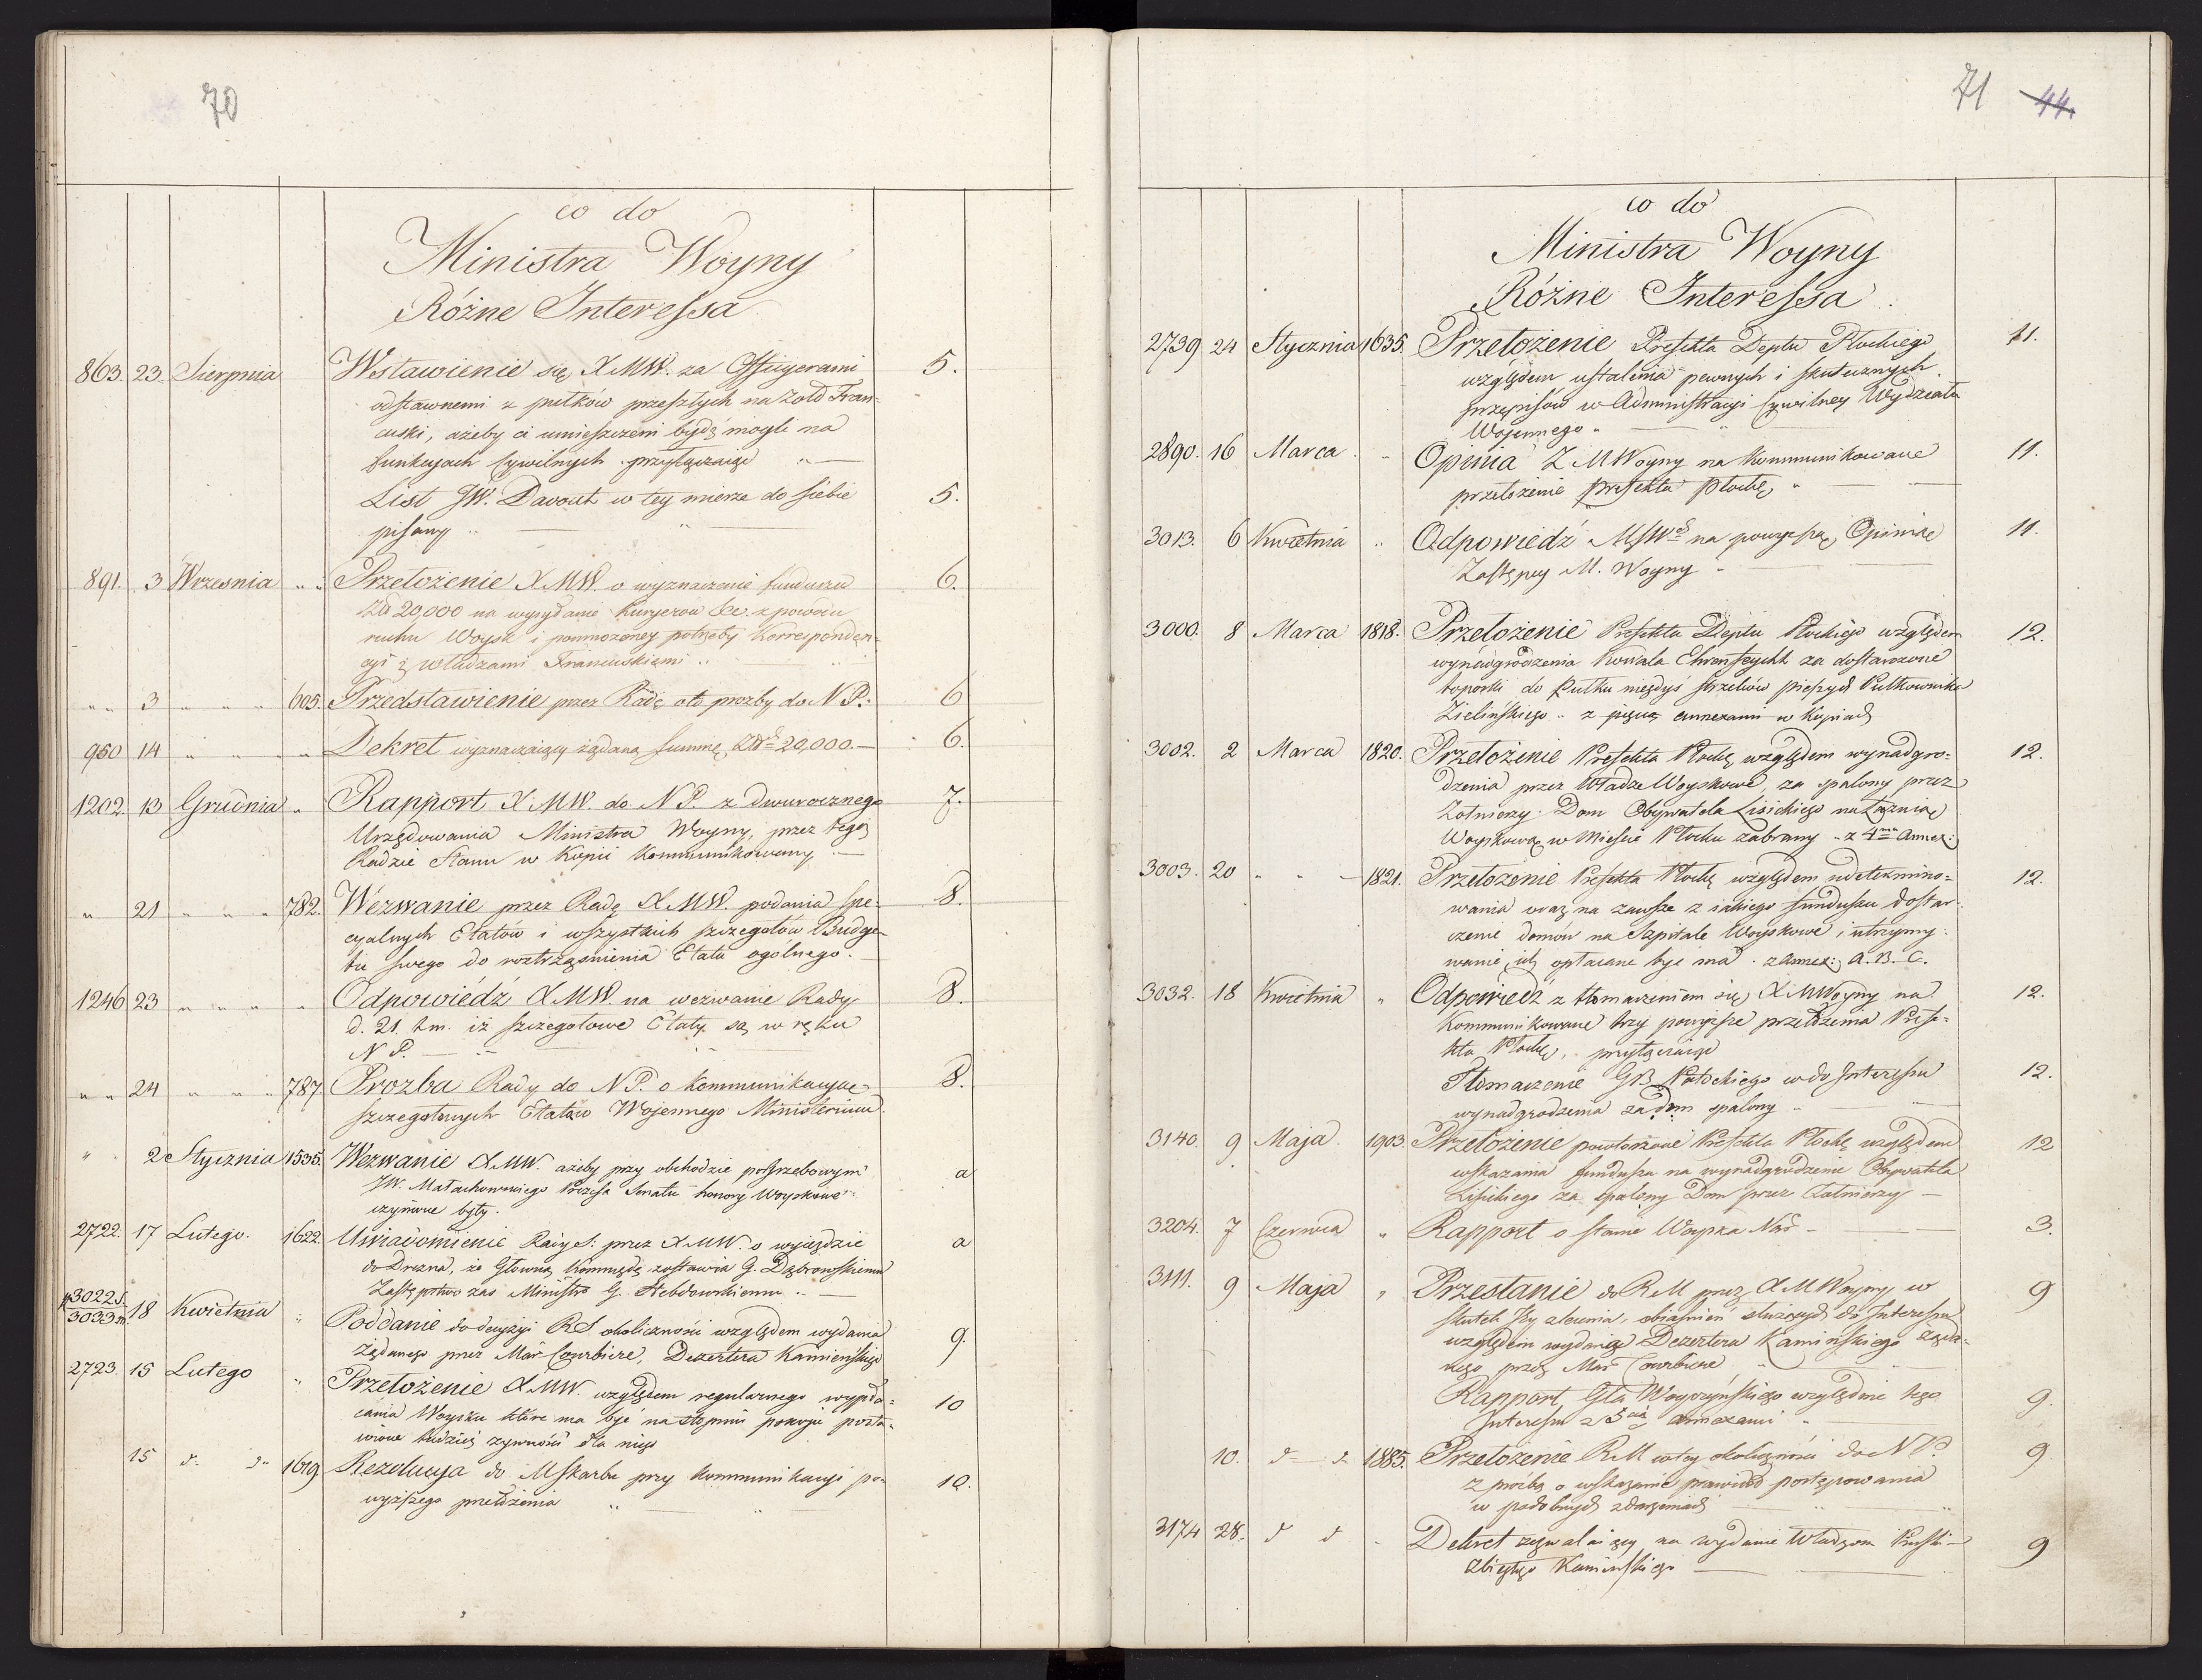 70
co do
Ministra Woyny
Różne Interessa
863. 23. Sierpnia Wstawienie się X MW. za Officyerami 5.
odstawnemi z pułków przeszłych na żołd Fran-
cuski, ażeby ci umieszczeni bydź mogli na
funkcyach Cywilnych przyłączaiąc „ —
List JW. Davout w tey mierze do siebie 5.
pisany „ — „ —
891. 3 Wrzesnia „ „ Przełożenie X MW. o wyznaczenie funduszu 6.
20,000 na wysyłanie Kuryerow &c. z powodu
ruchu Woysk i pomnożoney potrzeby Korresponden-
cyi z władzami Francuskiemi „ —
„ „ 3 „ „ „ 605. Przedstawienie przez Radę oto prozby do N P.: 6
960 14 „ „ „ „ Dekret wyznaczaiący żądaną summę 20,000. — 6.
1202. 13 Grudnia „ Rapport X MW. do N P. z dwurocznego 7.
Urzędowania Ministra Woyny, przez tegoż
Radzie Stanu w Kopii kommunikowany —
„ 21 „ „ „ 782. Wézwanie przez Radę X MW. podania spe- 8.
cyalnych Etatów i wszystkich szczegołów Budge-
tu swego do roztrząsnienia Etatu ogólnego.
1246 23 „ „ „ „ Odpowiédz X MW. na wezwanie Rady 8.
d. 21. t.m. iż szczegołowe Etaty są w ręku
N P. — „ — „
„ „ 24 „ „ „ 787. Prozba Rady do N P. o kommunikacyae 8.
szczegołowych Etatow Wojennego Ministerium.
„ 2 Stycznia 1535. Wezwanie X MW. ażeby przy obchodzie pogrzebowym a
JW. Małachowskiego Prezesa Senatu honory Woyskowe
czynione były.
2722. 17 Lutego. 1622. Uwiadomienie Rady S: przez X MW. o wyieździe a
do Drezna, że Głowną Kommędę zostawia G. Dąbrowskiemu
Zastępstwo zas Ministra G. Hebdowskiemu „ —
3022 S.
3033 m. 18 Kwietnia „ Poddanie do decyzyi RS okoliczności względem wydania 9.
żądanego przez Mar Courbiere, Dezertera Kamieńskiego
2723. 15 Lutego „ Przełożenie X MW. względem regularnego wypła- 10
cania Woysku które ma być na stopniu pokoju posta-
wione tudzież żywności dla niego
15 d- d- 1619 Rezolucya do M Skarbu przy kommunikacyi po- 10.
wyższego przełożenia „ — „
71 44.
co do
Ministra Woyny
Różne Interessa
2739 24 Stycznia 1635. Przełożenie Prefekta Deptu Płockiego 11.
względem ustalenia pewnych i skutecznych
przepisów w Administracyi Cywilney Wydziału
Wojennego „ — „
2890. 16 Marca „ Opinia Z M Woyny na kommunikowane 11.
przełożenie Prefekta Płockę „ —
3013. 6 Kwietnia „ Odpowiedź na powyższą Opinią 11.
Zastępcy M. Woyny „ —
3000. 8 Marca 1818. Przełożenie Prefekta Deptu Płockiego względem 12.
wynadgrodzenia Kowala Ehrenfeycht za dostarczone
toporki do Pułku niegdyś strzelców pieszych Pułkownika
Zielińskiego „ z pięcią annexami w Kopiach
3002. 2 Marca 1820. Przełożenie Prefekta Płockę względem wynadgro- 12.
dzenia przez Władze Woyskowe, za spalony przez
Żołnierzy Dom Obywatela Lisickiego na Łaznią
Woyskową w Mieście Płocku zabrany „ z 4ma Annex:
3003. 20 „ „ — 1821. Przełożenie Prefekta Płockę względem udetermino- 12.
wania oraz na zawsze z iakiego funduszu dostar-
czenie domów na Szpitale Woyskowe i utrzymy-
wanie ich opłacane być ma . z Annex: A. B. C.
3032. 18 Kwietnia „ Odpowiedź z tłomaczeniem się X M Woyny na 12.
Kommunikowane trzy powyższe przełożenia Prefe-
kta Płockę, przyłączaiąc
Tłomaczenie GB Potockiego co do Interessu 12.
wynadgrodzenia za Dom spalony „ —
3140. 9 Maja 1903. Przełożenie powtorzone Prefekta Płockę względem 12
wskazania funduszu na wynadgrodzenie Obywatela
Lisickiego za spalony Dom przez Żołnierzy —
3204. 7 Czerwca „ Rapport o stanie Woyska — 3.
3111. 9 Maja „ Przesłanie do R M przez X M Woyny w 9
skutek Jey zlecenia, obiaśnień służących do Interessu
względem wydania Dezertera Kamińskiego żąda-
nego przez Mar Courbiere „
Rapport Gła Woyczyńskiego względnie tego 9.
Interessu z 3cią annexami „
10. d- d- 1885. Przełożenie R M w tey okoliczności do N P. 9
z prożbą o wskazanie prawideł postępowania
w podobnych zdarzeniach — „ „
3174 28. d d - Dekret zezwalaiący na wydanie Władzom Pruski— 9
zbiegłego Kamińskiego —